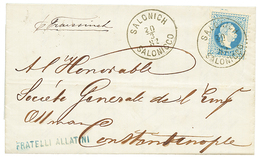 SALONICH
SALONICCO
SALONICH
All Honorable
Société Generale de l'Emp
Ottoman
Constantinople
FRATELLI ALLATINI